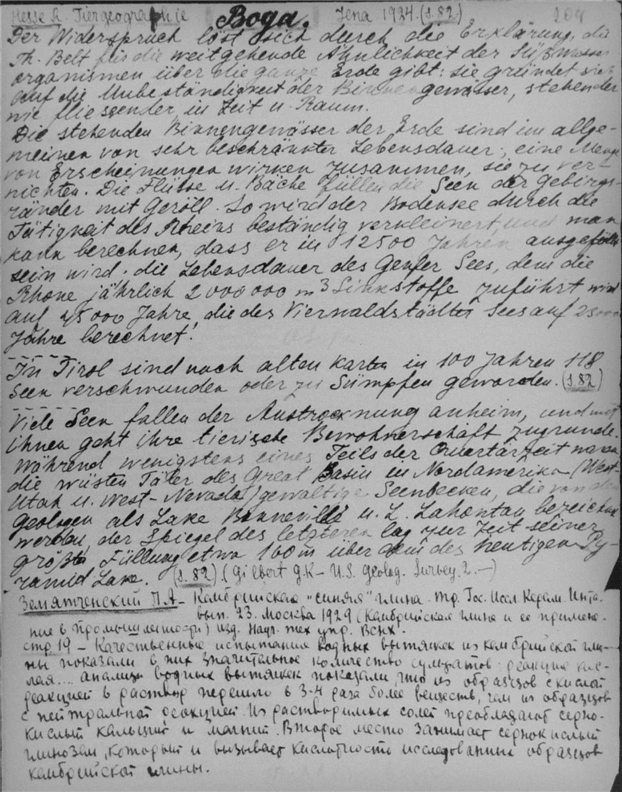 Hesse R. Tiergeographie Вода. Jena 1924. (S.82) 204
Der Widerspruch löst sich durch die Erklärung, die
Th. Belt für die weitgehende Ähnlichkeit der Süßwasser-
organismen über die ganze Erde gibt: sie gründet sich
auf die Unbeständigkeit der Binnengewässer, stehender
wie fliessender in Zeit u. Raum.
Die stehenden Binnengewässer der Erde sind im allge-
meinen von sehr beschränkter Lebensdauer; eine Menge
von Erscheinungen wirken zusammen, sie zu ver-
nichten. Die Flüsse u. Bäche füllen die Seen der Gebirgs-
ränder mit Geröll. So wird der Bodensee durch die
Tätigkeit des Rheins beständig verkleinert, und man
kann berechnen, dass er in 12500 Jahren ausgefüllt
sein wird. die Lebensdauer des Genfer Sees, dem die
Rhone jährlich 2000000 m³ Sinkstoffe zuführt wird
auf 45000 Jahre, die des Vierwaldstädter Sees auf
Jahre berechnet!
In Tirol sind nach alten Karten in 100 Jahren 118
Seen verschwunden oder zu Sümpfen geworden. (S.82)
Viele Seen fallen der Austrocknung anheim, und mit
ihnen geht ihre tierische Bewohnerschaft zugrunde.
Während wenigstens eines Teils der Quartärzeit waren
die wüsten Täler des Great Basin in Nordamerika (West-
Utah u. West-Nevada) gewaltige Seenbecken, die von den
Geologen als Lake Bonneville u. L. Lahontan bezeichnet
werden der Spiegel des letzteren lag zur Zeit seiner
größten Füllung etwa 160 m über dem des heutigen Py-
ramid Lake. (S.82) (Gilbert G.K - U.S. Geolog. Survey. 2. -)
Земятченский П.А - Кембрийская "синяя" глина. Тр. Гос. Иссл Керам Инта.
вып. 23. Москва 1929 (Кембрийская глина и ее примене-
ние в промышленности) изд. Науч. тех упр. ВСНХ.
стр. 19 - Качественные испытания водных вытяжек из кембрийской гли-
ны показали в них значительное количество сульфатов: реакция кис-
лая... анализы водных вытяжек показали, что из образцов с кислой
реакцией в раствор перешло в 3-4 раза более веществ, чем из образцов
с нейтральной реакцией. Из растворимых солей преобладают серно-
кислый кальций и магний. Второе место занимает сернокислый
глинозем, который и вызывает кислотность исследованных образцов
кембрийской глины.